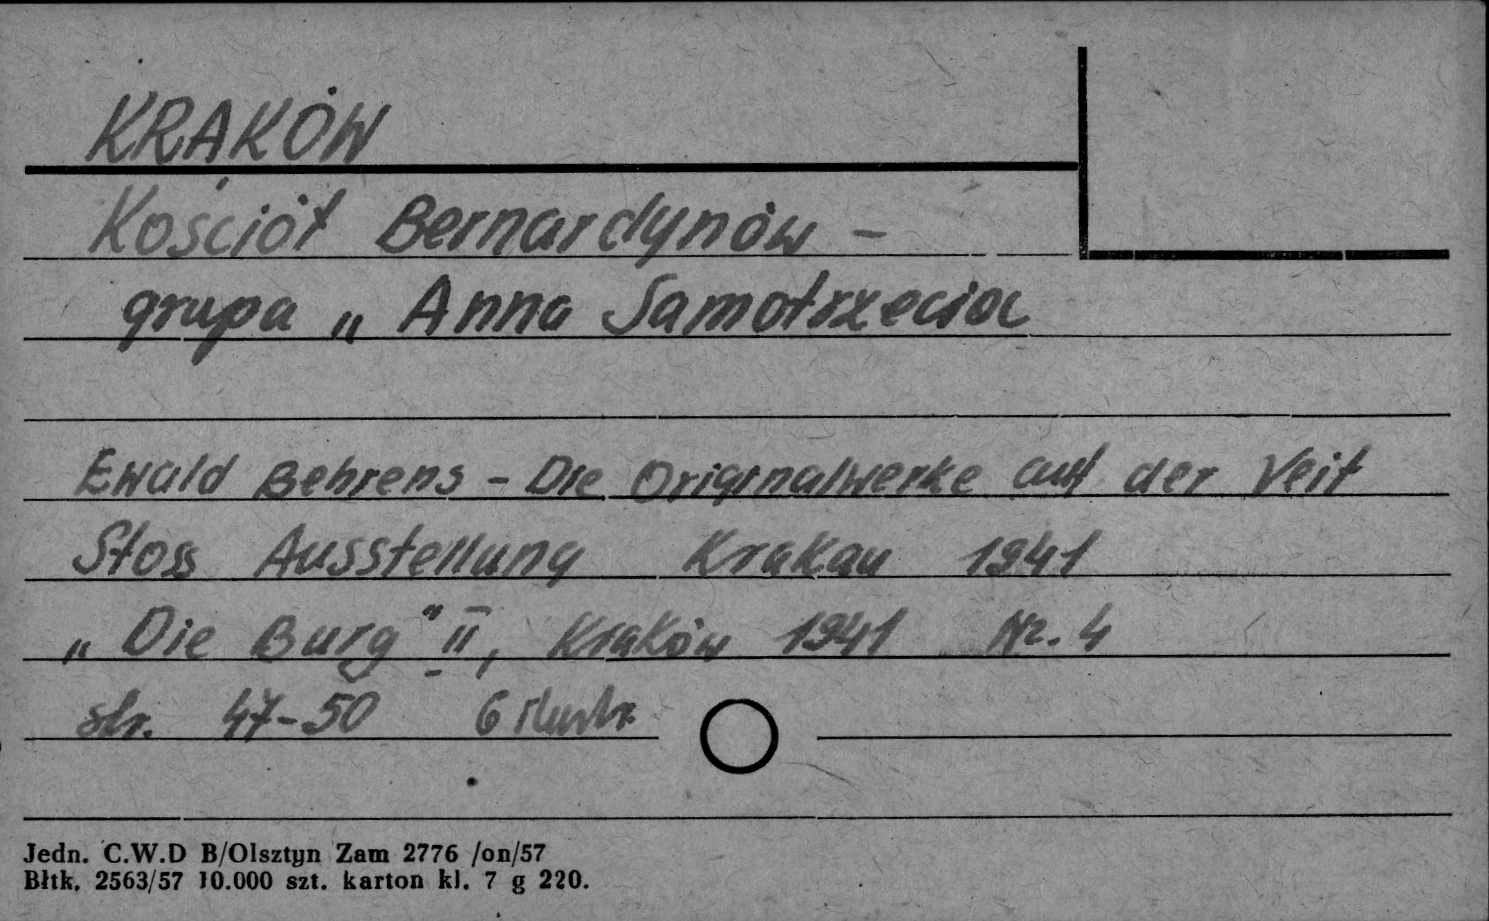 KRAKÓW
Kościół Bernardynów -
grupa „ Anna Samotrzecia
Ewald Behrens - Die Originalwerke auf der Veit
Stoss Ausstellung Krakau 1941
„ Die Burg " II, Kraków 1941 Nr. 4
str. 47-50 6 ilustr.
Jedn. C.W.D B/Olsztyn Zam 2776 /on/57
Bltk. 2563/57 10.000 szt. karton kl. 7 g 220.